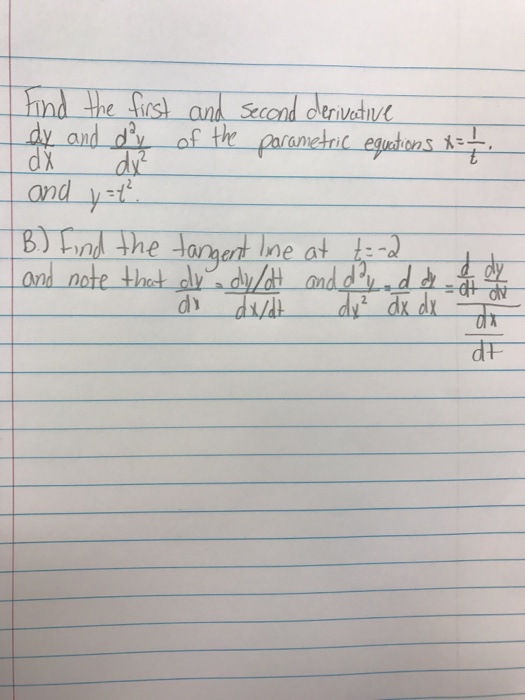 Find the first and second derivative
dy/dx and d²y/dx² of the parametric equations x=1/t.
and y=t².
B.) Find the tangent line at t=-2
and note that dy/dx = dy/dt / dx/dt and d²y/dx² = d/dx dy/dx = d/dt dy/dx / dx/dt